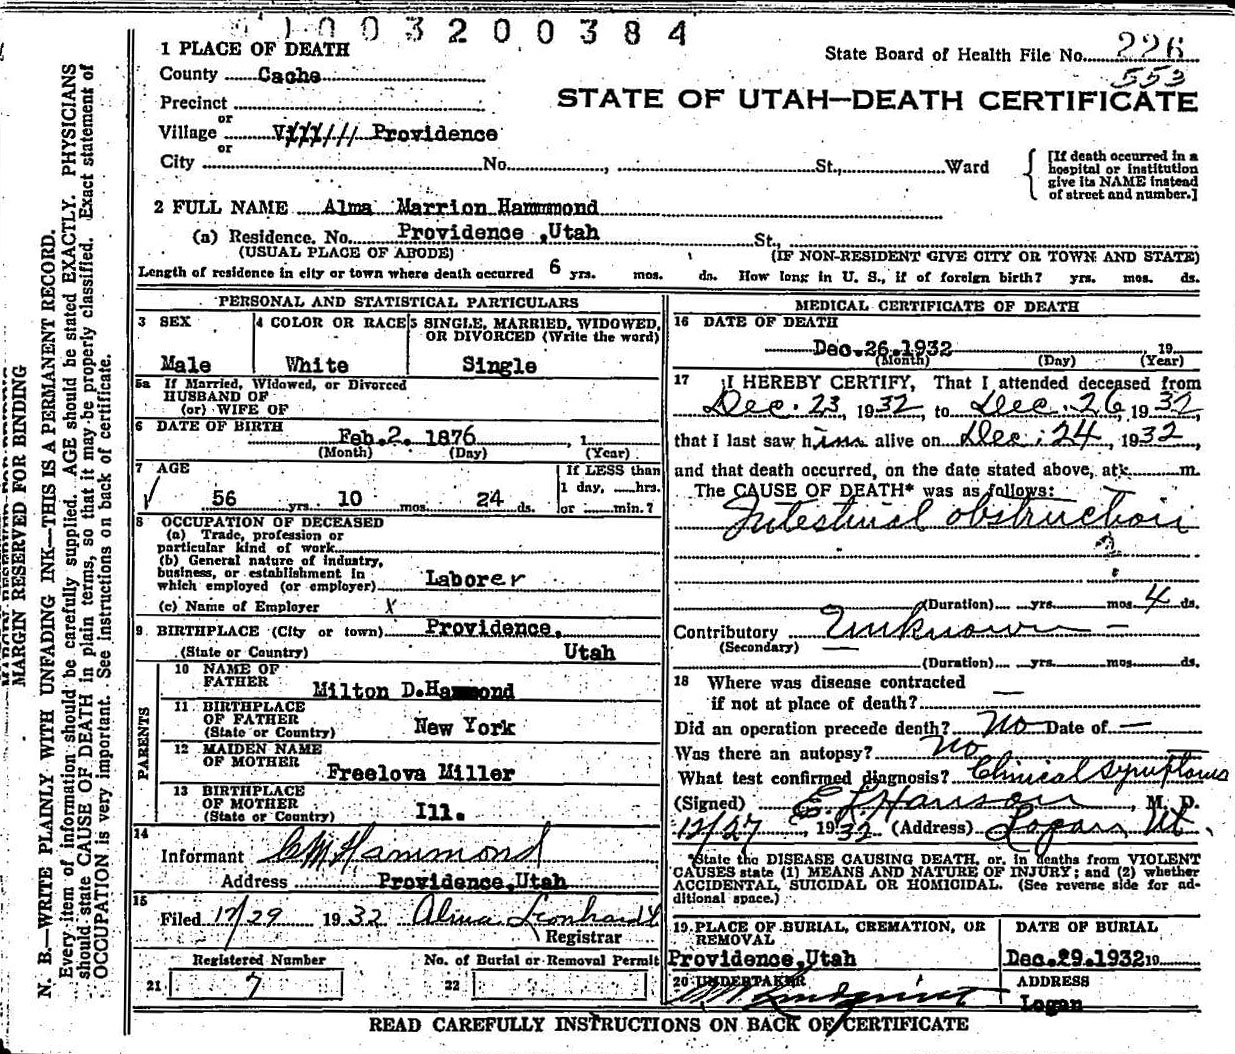 1003200384
1 PLACE OF DEATH
State Board of Health File No. 226
553
County Cache
STATE OF UTAH—DEATH CERTIFICATE
Precinct
or
Village Providence
or
City No. , St., Ward
[If death occurred in a
hospital or institution
give its NAME instead
of street and number.]
2 FULL NAME Alma Marrion Hammmond
(a) Residence. No. Providence ,Utah St.,
(USUAL PLACE OF ABODE) (IF NON-RESIDENT GIVE CITY OR TOWN AND STATE)
Length of residence in city or town where death occurred 6 yrs. mos. ds. How long in U. S., if of foreign birth? yrs. mos. ds.
PERSONAL AND STATISTICAL PARTICULARS
3 SEX
Male
4 COLOR OR RACE
White
5 SINGLE, MARRIED, WIDOWED,
OR DIVORCED (Write the word)
Single
5a If Married, Widowed, or Divorced
HUSBAND OF
(or) WIFE OF
6 DATE OF BIRTH
Feb.2. 1876 , 1
(Month) (Day) (Year)
7 AGE
56 yrs. 10 mos. 24 ds.
If LESS than
1 day, hrs.
or min.?
8 OCCUPATION OF DECEASED
(a) Trade, profession or
particular kind of work
(b) General nature of industry,
business, or establishment in
which employed (or employer) Laborer
(c) Name of Employer X
9 BIRTHPLACE (City or town) Providence,
(State or Country) Utah
PARENTS
10 NAME OF
FATHER Milton D.Hammond
11 BIRTHPLACE
OF FATHER
(State or Country) New York
12 MAIDEN NAME
OF MOTHER Freelova Miller
13 BIRTHPLACE
OF MOTHER
(State or Country) Ill.
14
Informant C M Hammond
Address Providence,Utah
15
Filed 12/29 1932 Alma Leonhardt
Registrar
Registered Number
21 7
No. of Burial or Removal Permit
22
MEDICAL CERTIFICATE OF DEATH
16 DATE OF DEATH
Dec.26.1932 19
(Month) (Day) (Year)
17 I HEREBY CERTIFY, That I attended deceased from
Dec. 23, 1932 to Dec. 26, 1932
that I last saw him alive on Dec. 24, 1932
and that death occurred, on the date stated above, at m.
The CAUSE OF DEATH* was as follows:
Intestinal obstruction
(Duration) yrs. mos. 4 ds.
Contributory Unknown —
(Secondary) —
(Duration) yrs. mos. ds.
18 Where was disease contracted
if not at place of death? —
Did an operation precede death? No Date of —
Was there an autopsy? No
What test confirmed diagnosis? Clinical symptoms
(Signed) E. L. Hanson, M. D.
12/27, 1932 (Address) Logan, Ut.
*State the DISEASE CAUSING DEATH, or, in deaths from VIOLENT
CAUSES state (1) MEANS AND NATURE OF INJURY; and (2) whether
ACCIDENTAL, SUICIDAL OR HOMICIDAL. (See reverse side for ad-
ditional space.)
19 PLACE OF BURIAL, CREMATION, OR
REMOVAL
Providence,Utah
DATE OF BURIAL
Dec.29.1932 19
20 UNDERTAKER
Lindquist
ADDRESS
Logan
READ CAREFULLY INSTRUCTIONS ON BACK OF CERTIFICATE
MARGIN RESERVED FOR BINDING
N. B.—WRITE PLAINLY WITH UNFADING INK—THIS IS A PERMANENT RECORD.
Every item of information should be carefully supplied. AGE should be stated EXACTLY. PHYSICIANS
should state CAUSE OF DEATH in plain terms, so that it may be properly classified. Exact statement of
OCCUPATION is very important. See instructions on back of certificate.